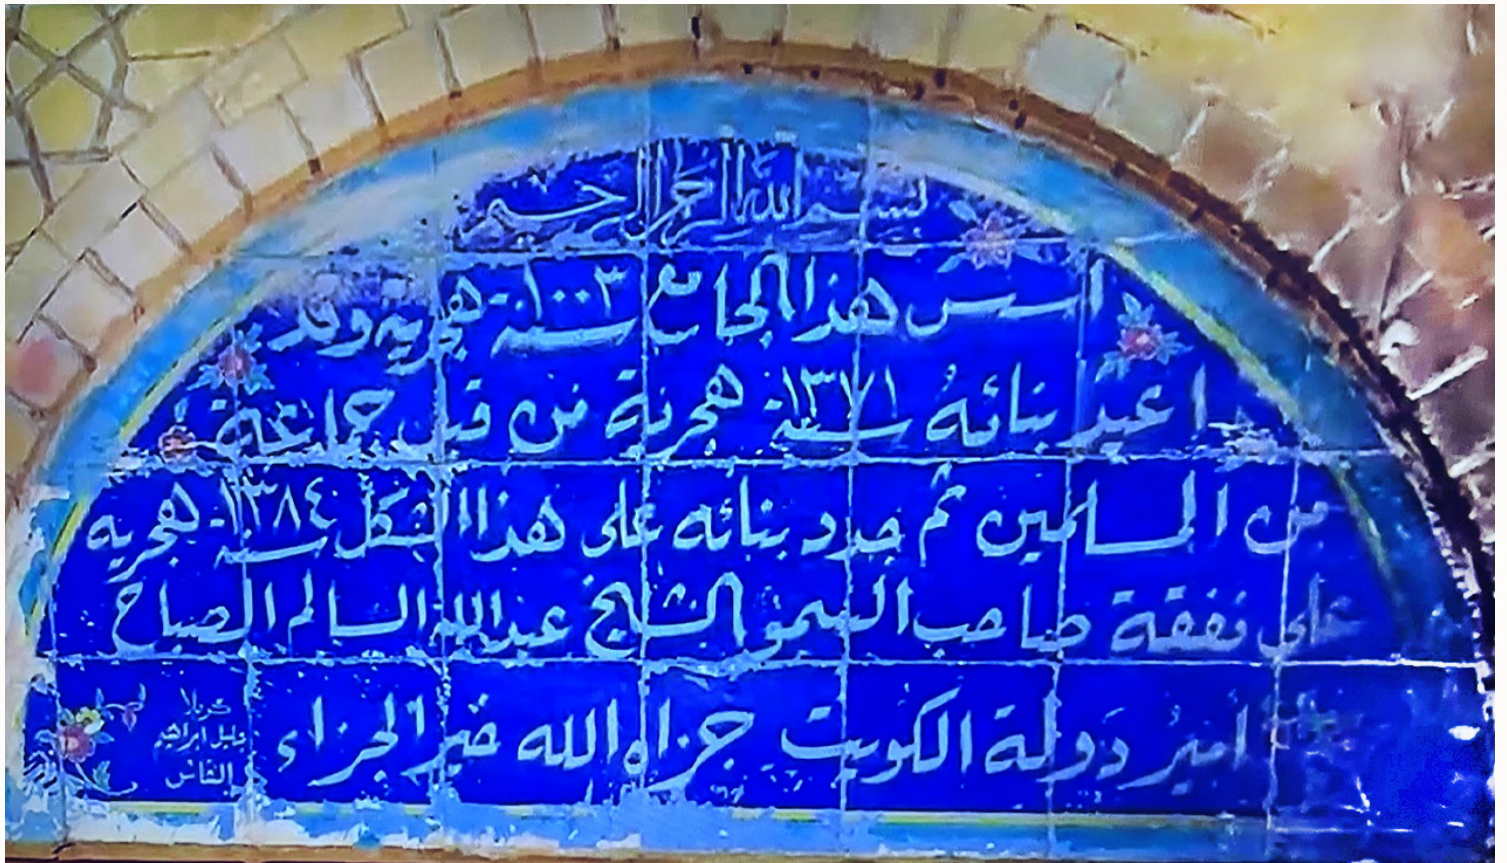 بسم الله الرحمن الرحيم
اسس هذا الجامع سنة ١٠٠٣ هجرية وقد
اعيد بنائهُ سنة ١٣٧١ هجرية من قبل جماعة
من المسلمين ثم جدد بنائه على هذا الشكل سنة ١٣٨٤ هجرية
على نفقة صاحب السمو الشيخ عبدالله السالم الصباح
امير دولة الكويت جزاه الله خير الجزاء
كربلا
خليل ابراهيم
النقاش